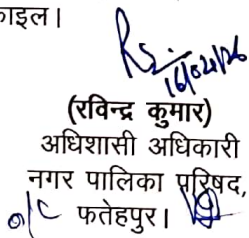 ाइल।
16/02/26
(रविन्द्र कुमार)
अधिशासी अधिकारी
नगर पालिका परिषद,
o/c फतेहपुर।